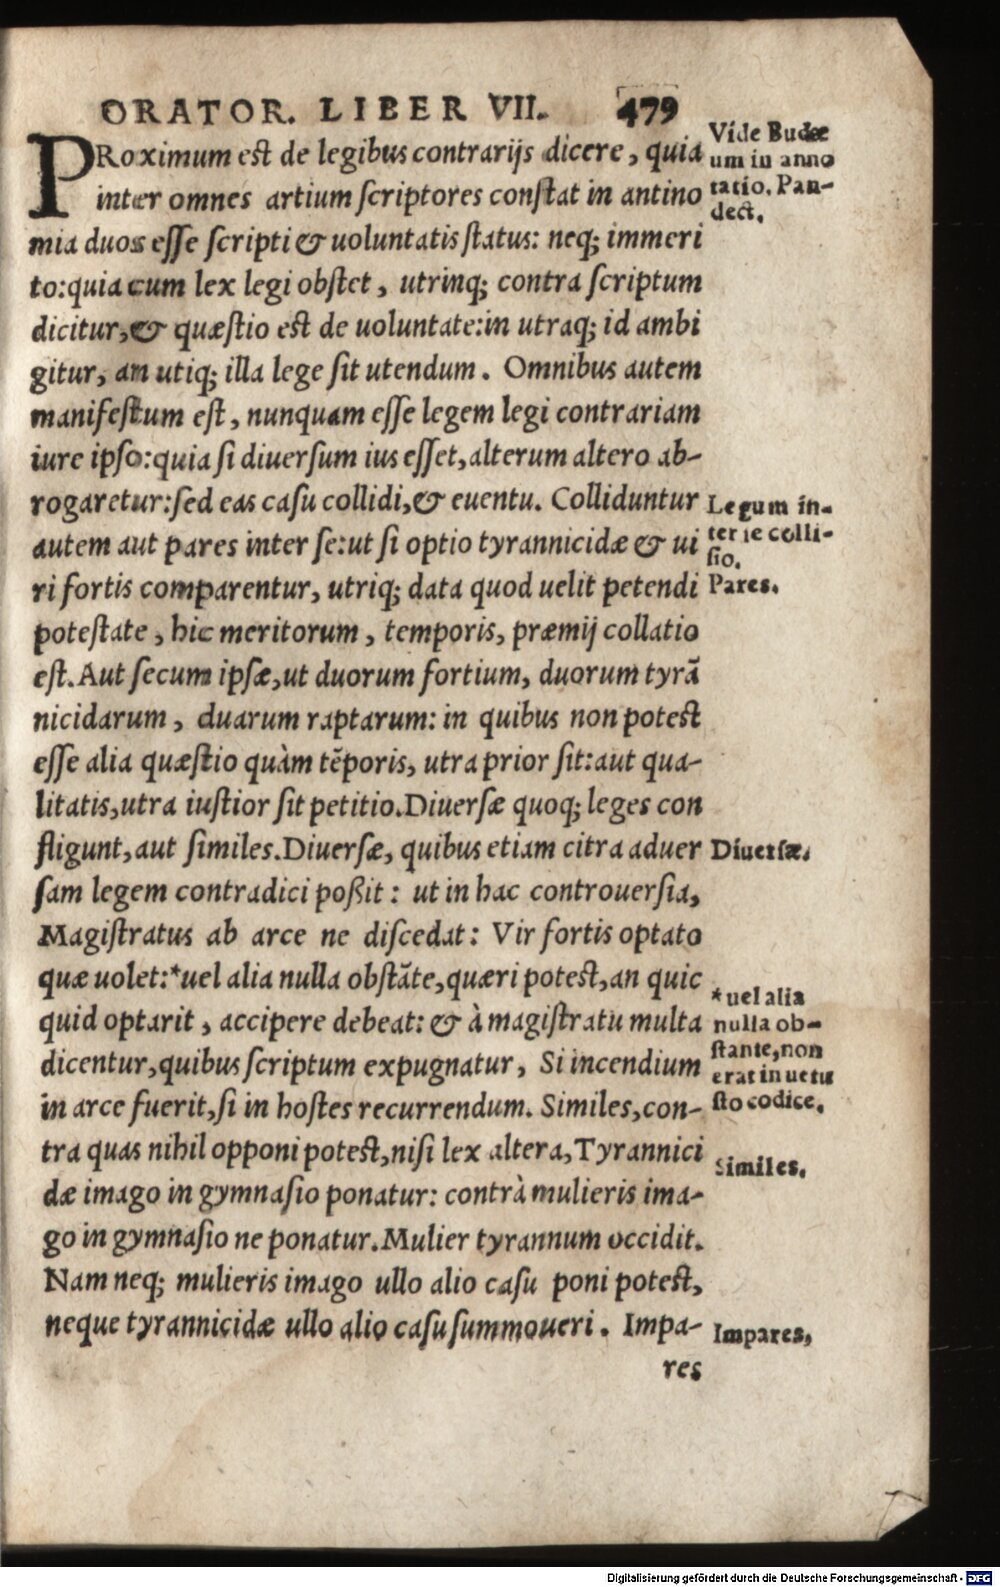 ORATOR. LIBER VII. 479
PRoximum est de legibus contrarijs dicere, quia
inter omnes artium scriptores constat in antino
mia duos esse scripti & uoluntatis status: neq; immeri
to: quia cum lex legi obstet, utrinq; contra scriptum
dicitur, & quæstio est de uoluntate: in utraq; id ambi
gitur, an utiq; illa lege sit utendum. Omnibus autem
manifestum est, nunquam esse legem legi contrariam
iure ipso: quia si diuersum ius esset, alterum altero ab-
rogaretur: sed eas casu collidi, & euentu. Colliduntur
autem aut pares inter se: ut si optio tyrannicidæ & ui
ri fortis comparentur, utriq; data quod uelit petendi
potestate, hic meritorum, temporis, præmij collatio
est. Aut secum ipsæ, ut duorum fortium, duorum tyrã
nicidarum, duarum raptarum: in quibus non potest
esse alia quæstio quàm tẽporis, utra prior sit: aut qua-
litatis, utra iustior sit petitio. Diuersæ quoq; leges con
fligunt, aut similes. Diuersæ, quibus etiam citra aduer
sam legem contradici poßit: ut in hac controuersia,
Magistratus ab arce ne discedat: Vir fortis optato
quæ uolet: *uel alia nulla obstãte, quæri potest, an quic
quid optarit, accipere debeat: & à magistratu multa
dicentur, quibus scriptum expugnatur, Si incendium
in arce fuerit, si in hostes recurrendum. Similes, con-
tra quas nihil opponi potest, nisi lex altera, Tyrannici
dæ imago in gymnasio ponatur: contrà mulieris ima-
go in gymnasio ne ponatur. Mulier tyrannum occidit.
Nam neq; mulieris imago ullo alio casu poni potest,
neque tyrannicidæ ullo alio casu summoueri. Impa-
res
Vide Budæ
um in anno
tatio. Pan-
dect.
Legum in-
ter se colli-
sio.
Pares.
Diuersæ.
*uel alia
nulla ob-
stante, non
erat in uetu
sto codice.
Similes.
Impares,
Digitalisierung gefördert durch die Deutsche Forschungsgemeinschaft - DFG